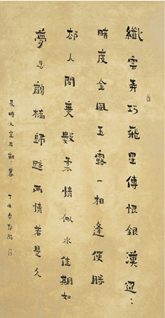 纖雲弄巧飛星傳恨銀漢迢〻
暗度金風玉露一相逢便勝
却人間無數柔情似水佳期如
夢忍顧橋歸路兩情若是久